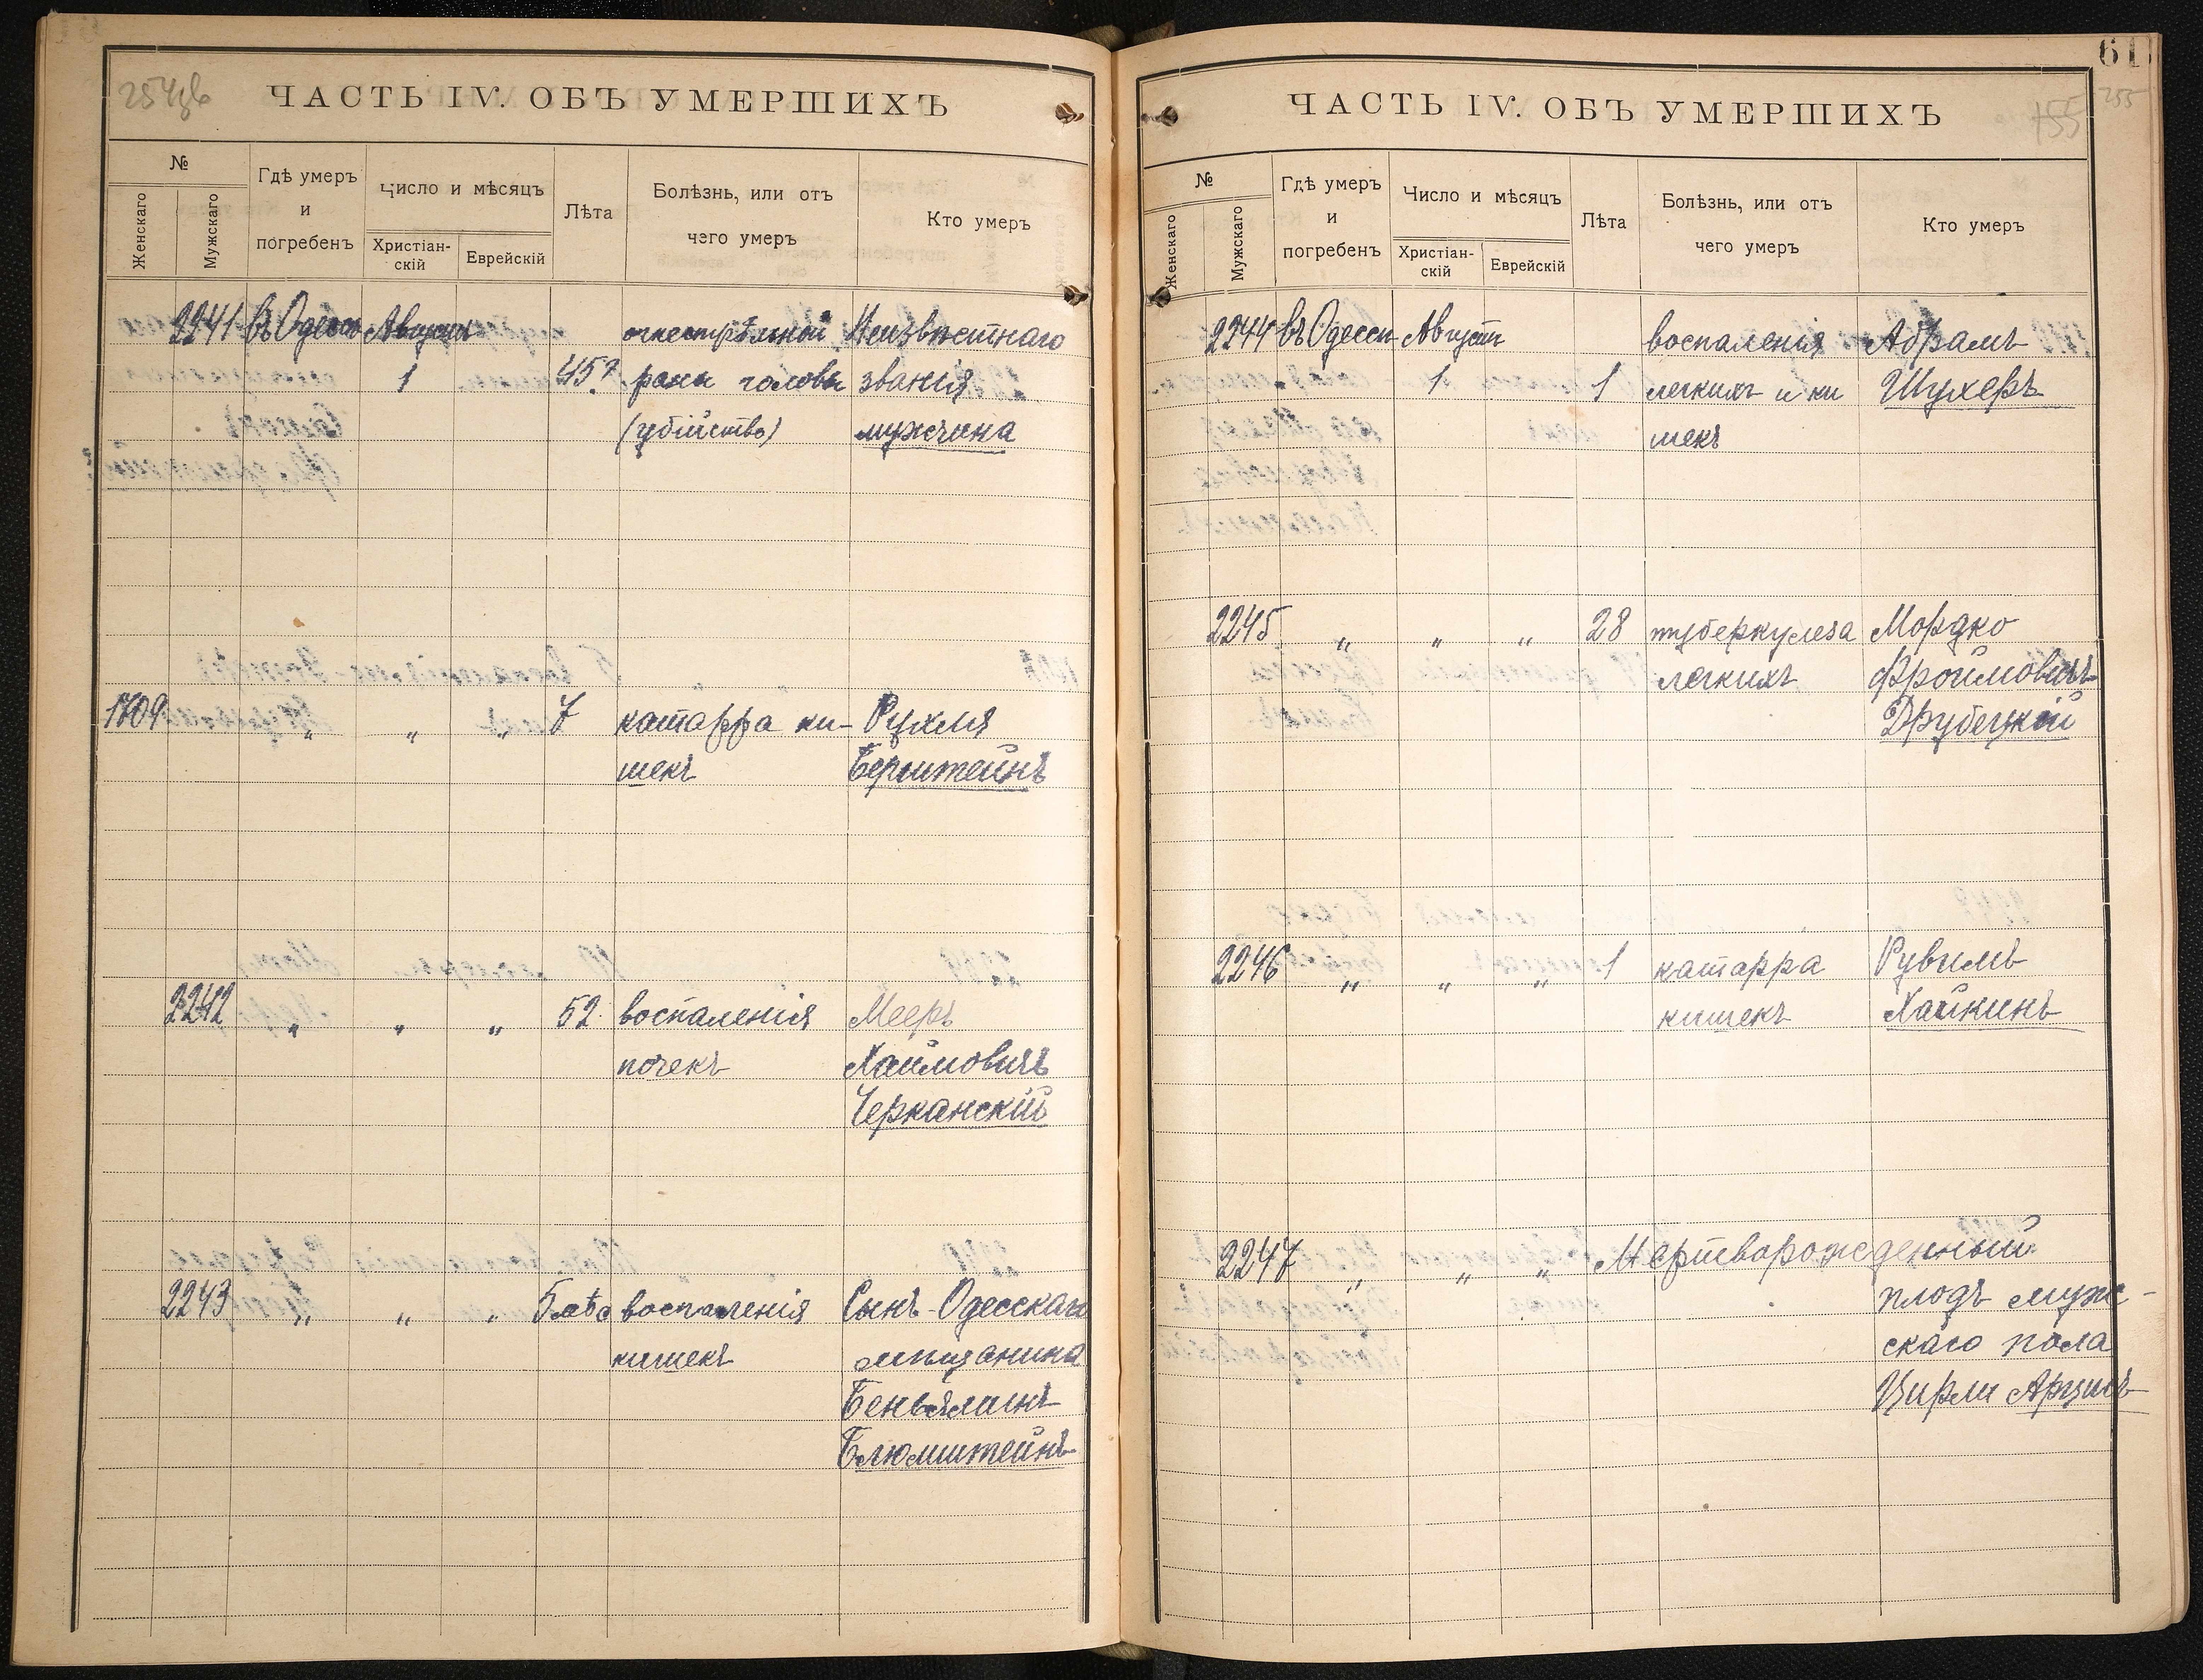 ЧАСТЬ IV. ОБЪ УМЕРШИХЪ
№
Женскаго
Мужскаго
Гдѣ умеръ
и
погребенъ
Число и мѣсяцъ
Христіан-
скій
Еврейскій
Лѣта
Болѣзнь, или отъ
чего умеръ
Кто умеръ
2241 въ Одессѣ Августа огнестрѣльной Неизвѣстнаго
1 45? раны головы званія
(убійство) мужчина
1709 " " " 7 катарра ки- Рухля
шекъ Бернштейнъ
2242 " " " 52 воспаленія Мееръ
почекъ Хаимовичъ
Черканскій
2243 " " " воспаленія Сынъ Одесскаго
кишекъ мѣщанина
Блюмштейнъ
61
ЧАСТЬ IV. ОБЪ УМЕРШИХЪ
155 255
№
Женскаго
Мужскаго
Гдѣ умеръ
и
погребенъ
Число и мѣсяцъ
Христіан-
скій
Еврейскій
Лѣта
Болѣзнь, или отъ
чего умеръ
Кто умеръ
2244 въ Одессѣ Августа воспаленія Абрамъ
1 1 легкихъ и ки Шухеръ
шекъ
2245 " " " 28 туберкулеза Мордко
легкихъ Фроимовичъ
Друбецкой
2246 " " " 1 катарра Рувимъ
кишекъ Хайкинъ
2247 " " " Мертворожденный
плодъ муж-
скаго пола
Цирли Арцисъ